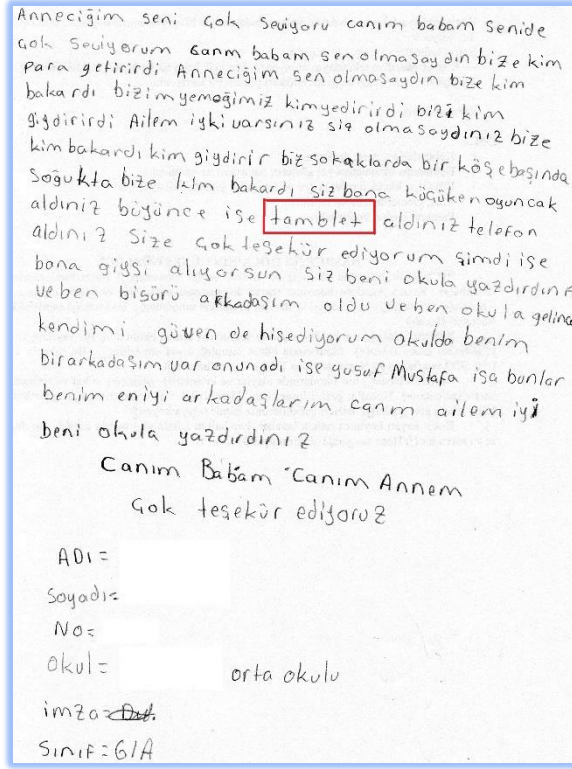 Anneciğim seni çok seviyoru canım babam senide
çok seviyorum canım babam sen olmasaydın bize kim
para getirirdi Anneciğim sen olmasaydın bize kim
bakardı bizim yemeğimiz kim yedirirdi bizi kim
giydirirdi Ailem iyki varsınız siz olmasaydınız bize
kim bakardı kim giydirir biz sokaklarda bir köşebaşında
soğukta bize kim bakardı siz bana küçüken oyuncak
aldınız büyünce ise tamblet aldınız telefon
aldınız Size çok teşekür ediyorum şimdi ise
bana giysi alıyorsun siz beni okula yazdırdın
ve ben bisürü arkadaşım oldu ve ben okula gelince
kendimi güven de hisediyorum okulda benim
bir arkadaşım var onun adı ise yusuf Mustafa isa bunlar
benim eniyi arkadaşlarım canım ailem iyi
beni okula yazdırdınız
Canım Babam Canım Annem
çok teşekür ediyoruz
ADI =
Soyadı=
No=
Okul= orta okulu
imza=
Sınıf=6/A